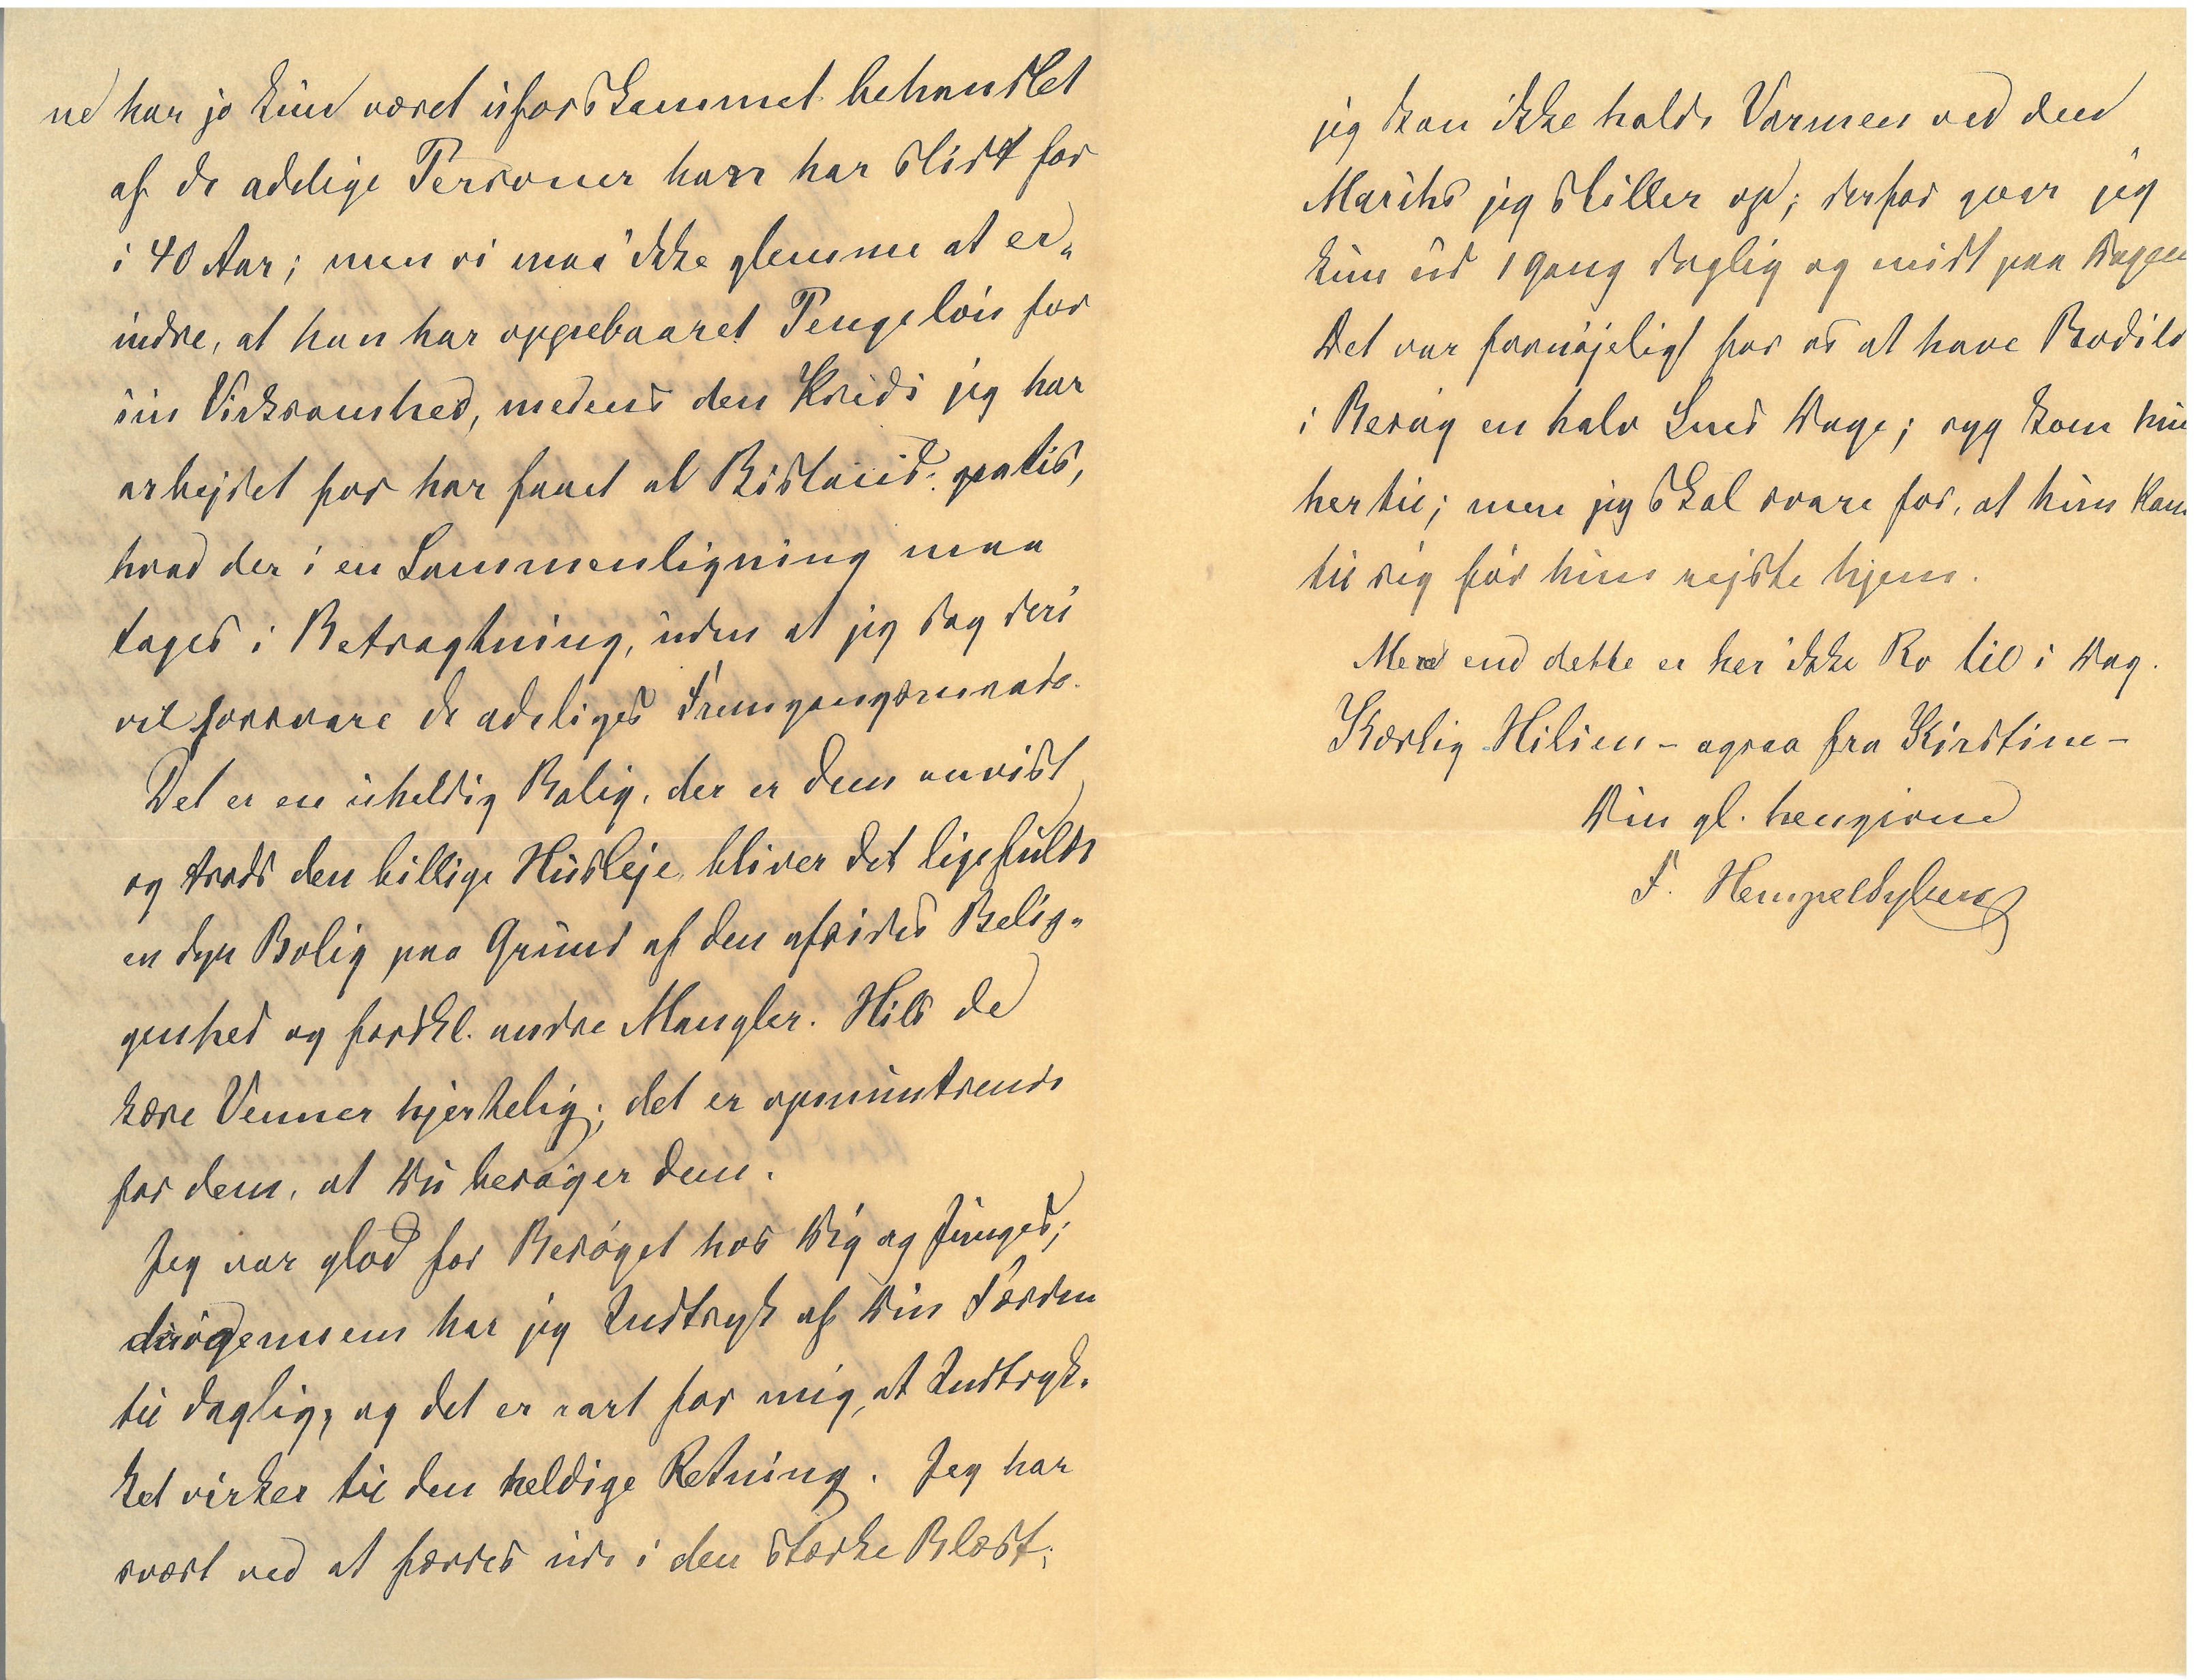 ne har jo kun været uforskammet behandlet
af de adelige Personer han har slidt for
i 40 Aar; men vi maa ikke glemme at er„
indre, at han har oppebaaret Pengeløn for
sin Virksomhed, medens den Kreds jeg har
arbejdet for har faaet al Bistand gratis,
hvad der i en Sammenligning maa
tages i Betragtning, uden at jeg dog deri
vil forsvare de adeliges Fremgangsmaade.
Det er en uheldig Bolig, der er dem anvist
og trods den billige Husleje bliver det ligefuldt
en dyr Bolig paa Grund af den afsides Belig„
genhed og forskl. andre Mangler. Hils de
kære Venner hjertelig; det er opmuntrende
for dem, at Du besøger dem.
Jeg var glad for Besøget hos Dig og Junges;
derigennem har jeg Indtryk af Din Færden
til daglig, og det er rart for mig, at Indtryk-
ket virker til den heldige Retning. Jeg har
svært ved at færdes ude i den stærke Blæst;
jeg kan ikke holde Varmen ved den
March jeg stiller op; derfor gaar jeg
kun ud 1 Gang daglig og midt paa Dagen
Det var fornøjeligt for os at have Bodild
i Besøg en halv Snes Dage; syg kom hun
hertil; men jeg skal svare for, at hun kom
til sig før hun rejste hjem.
Mere end dette er her ikke Ro til i Dag.
Kærlig Hilsen – ogsaa fra Kirstine –
Din gl. hengivne
F. Hempel Syberg